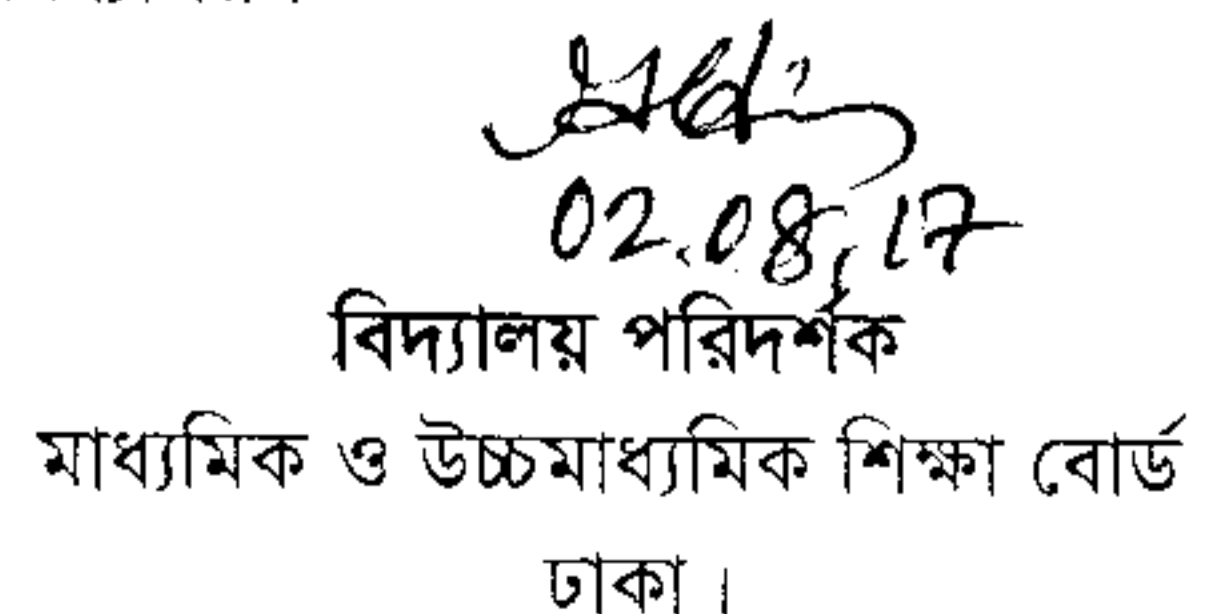 02.08.17
বিদ্যালয় পরিদর্শক
মাধ্যমিক ও উচ্চমাধ্যমিক শিক্ষা বোর্ড
ঢাকা।